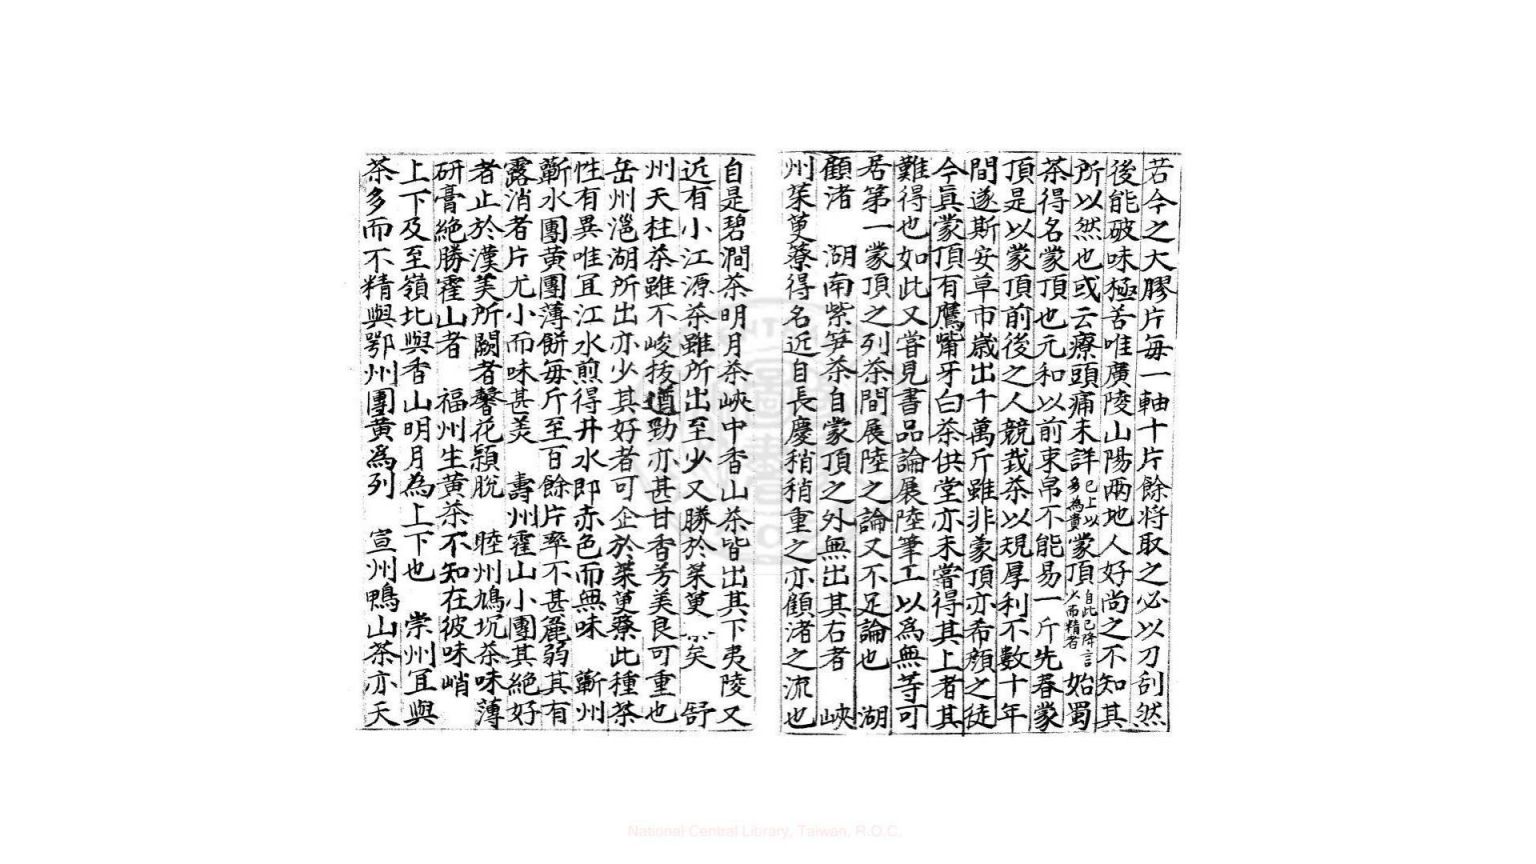 若今之大膠片每一軸十片餘將取之必以刀刮然
後能破味極苦唯廣陵山陽兩地人好尚之不知其
所以然也或云療頭痛未詳已上以多為貴蒙頂自此已降言少而精者始蜀
茶得名蒙頂也元和以前束帛不能易一斤先春蒙
頂是以蒙頂前後之人競栽茶以規厚利不數十年
間遂斯安草市歲出千萬斤雖非蒙頂亦希顔之徒
今眞蒙頂有鷹觜牙白茶供堂亦未嘗得其上者其
難得也如此又嘗見書品論展陸筆工以爲無等可
居第一蒙頂之列茶間展陸之論又不足論也　湖
顧渚　湖南紫笋茶自蒙頂之外無出其右者　峽
州茱萸簝得名近自長慶稍稍重之亦顧渚之流也
自是碧澗茶明月茶峽中香山茶皆出其下夷陵又
近有小江源茶雖所出至少又勝於茱萸矣　舒
州天柱茶雖不峻拔遒勁亦甚甘香芳美良可重也
岳州㴩湖所出亦少其好者可企於茱萸簝此種茶
性有異唯宜江水煎得井水即赤色而無味　蘄州
蘄水團黄團薄餅每斤至百餘片率不甚麄弱其有
露消者片尤小而味甚美　壽州霍山小團其絕好
者止於漢美所闕者馨花穎脫　睦州鳩坑茶味薄
研膏絕勝霍山者　福州生黄茶不知在彼味峭
上下及至嶺北與香山明月為上下也　崇州宜與
茶多而不精與鄂州團黄爲列　宣州鴨山茶亦天
National Central Library, Taiwan, R.O.C.